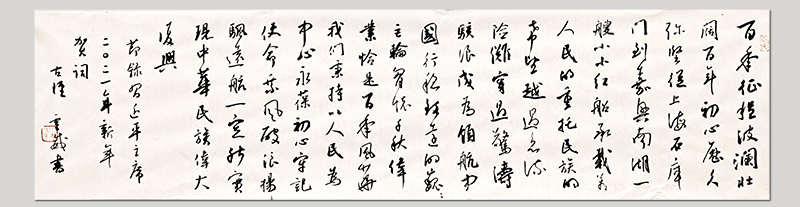 百年征程波澜壮
阔百年初心历久
弥坚从上海石库
门到嘉兴南湖一
艘小小红船承载着
人民的重托民族的
希望越过急流
险滩穿过惊涛
骇浪成为领航中
国行稳致远的巍巍
巨轮胸怀千秋偉
業恰是百年风華
我们秉持以人民为
中心永葆初心牢记
使命乘风破浪扬
帆远航一定能实
现中華民族偉大
復興
节录习近平主席
二〇二一年新年
贺词
书